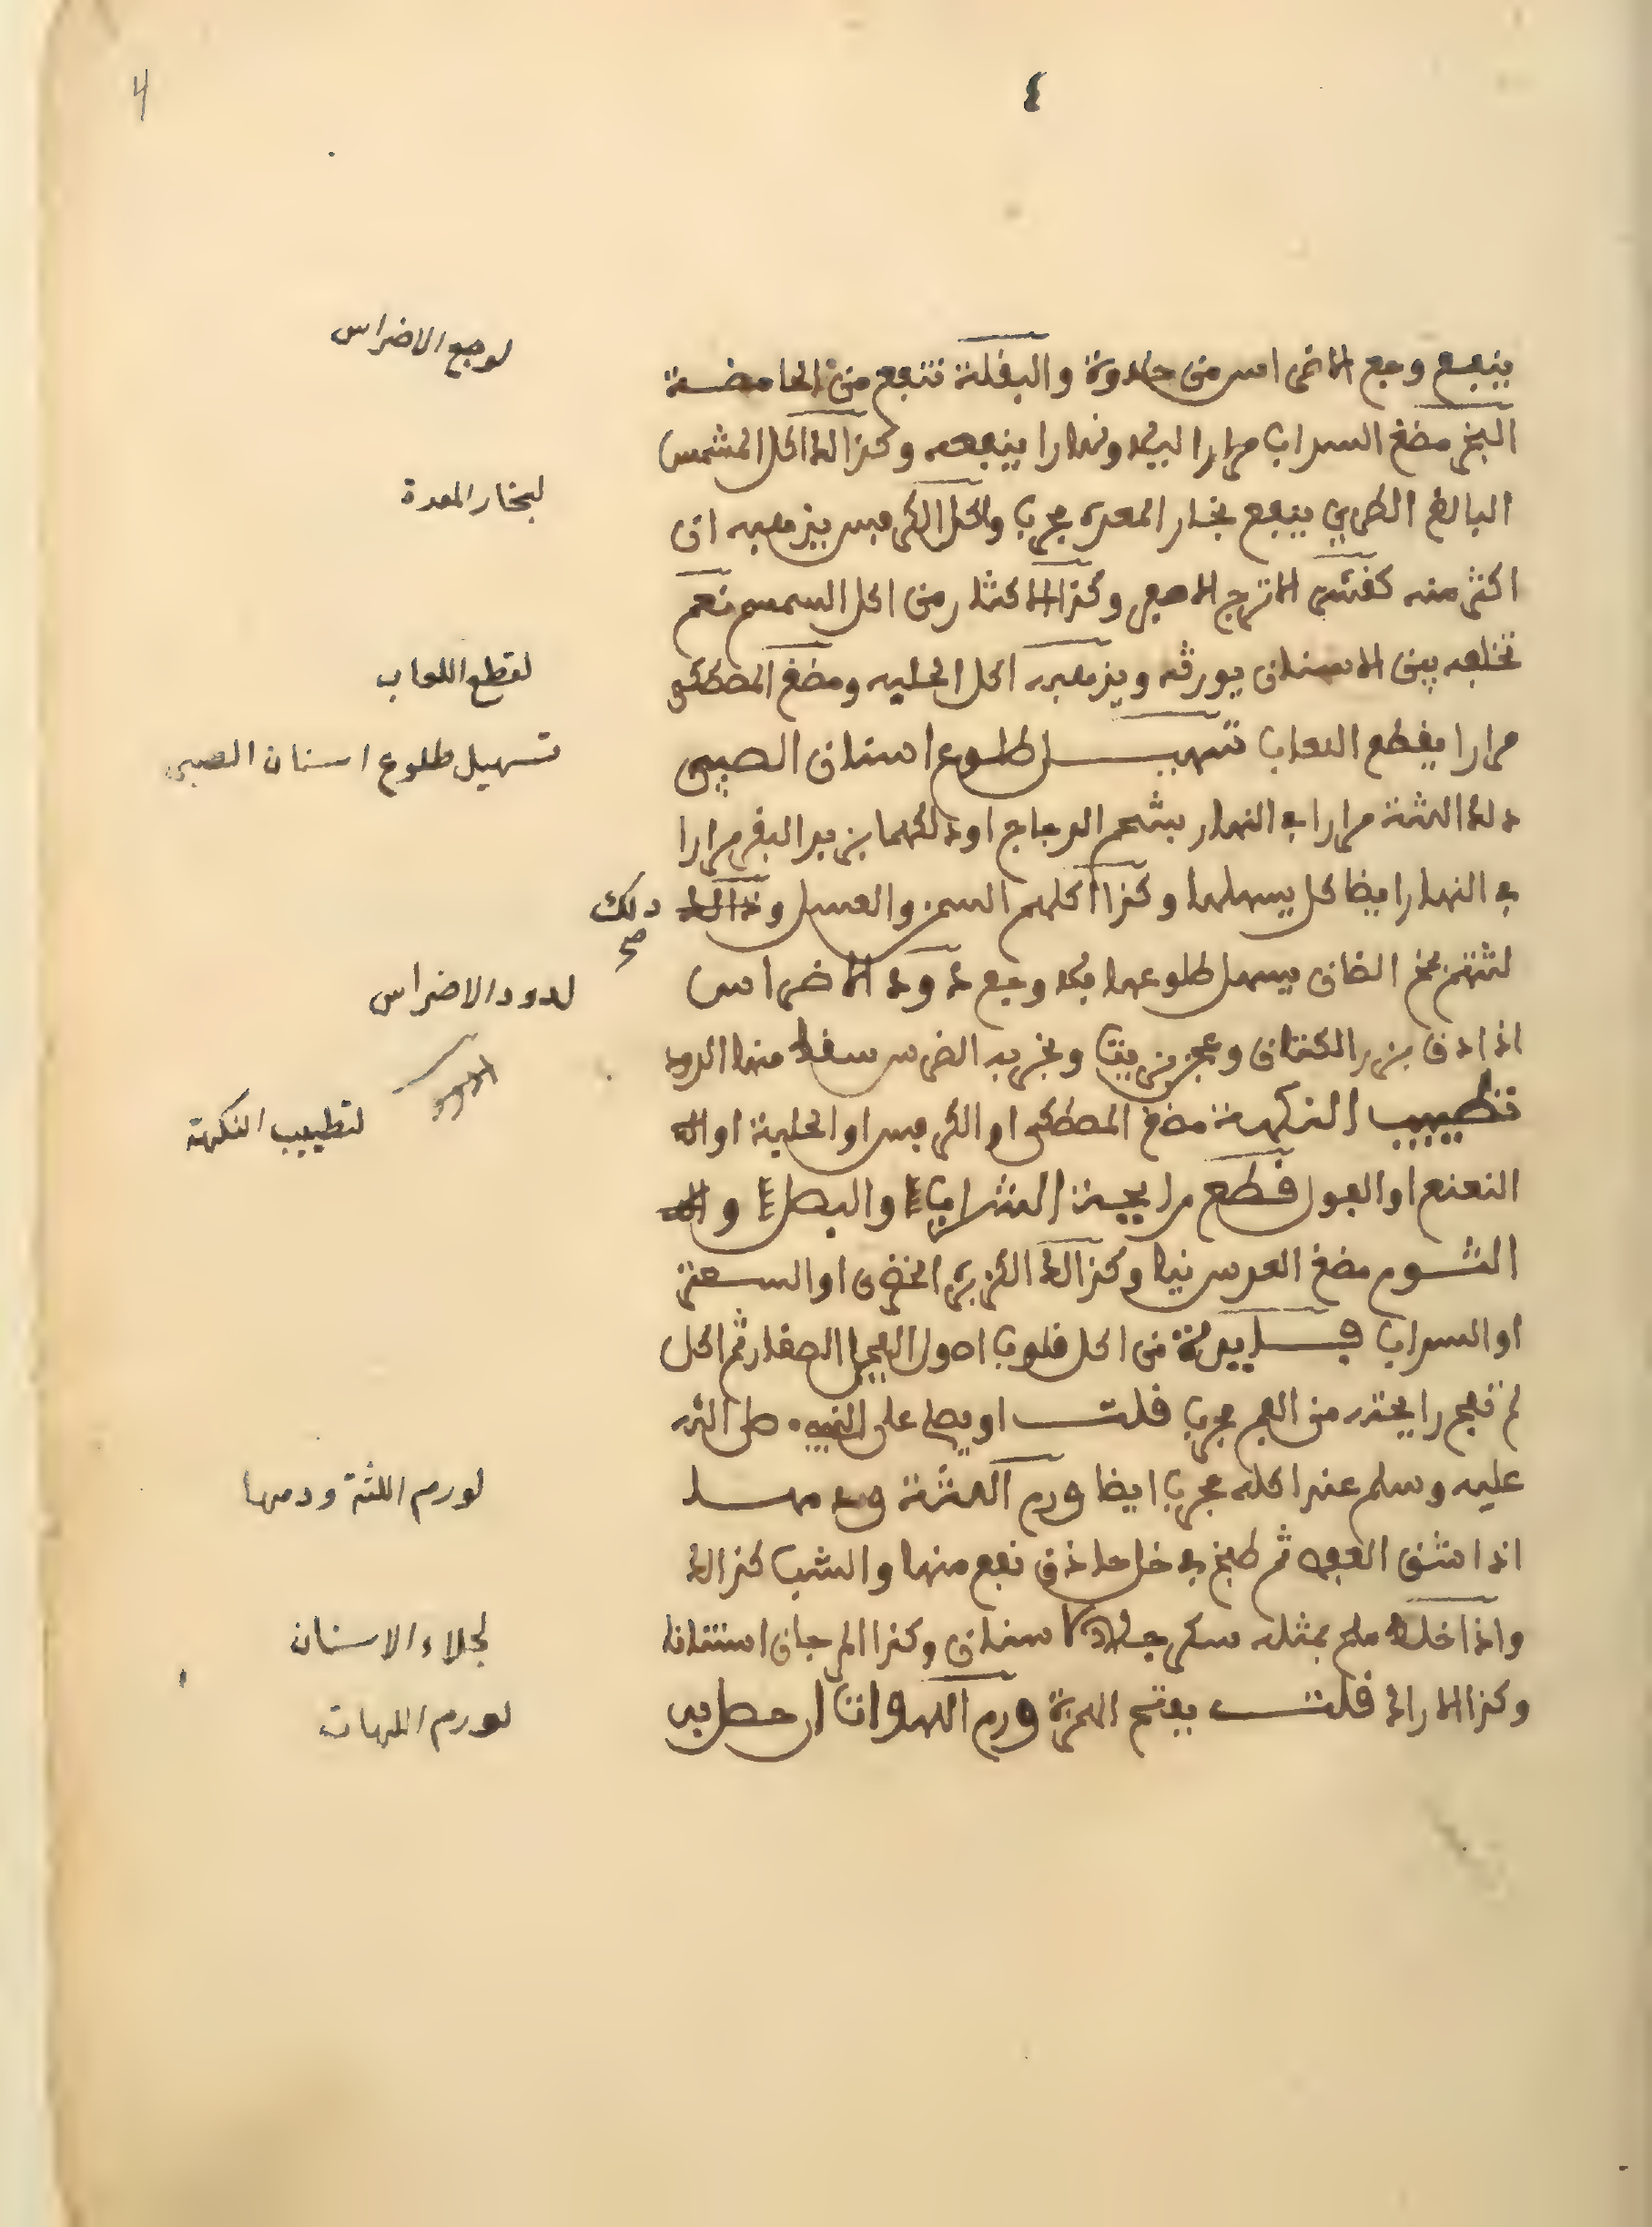 ٤
4
ينفع وجع الاضراس من حلاوة والبقلة تنفع من الحامضة
لوجع الاضراس
البخر مضغ السداب مرارا ليلا ونهارا ينفعه وكذالك اكل المشمس
البالغ الطري ينفع بخار المعدة مجرب واكل الكرفس يزيد فيه ان
لبخار المعدة
اكثر منه كقشر الاترج الاصفر وكذا الاكثار من اكل السمسم نعم
تخلفه بين الاسنان يورثه ويزيده اكل الحلبه ومضغ المصطكى
لقطع اللعاب
مرارا يقطع اللعاب تسهيل طلوع اسنان الصبي
تسهيل طلوع اسنان الصبي
دلك اللثة مرارا في النهار بشحم الدجاج او دلكها بزبد البقر مرارا
في النهار ايضا كل يسهلها وكذا اكلهم السمن والعسل و دلك
صح
لثتهم بمخ الضان يسهل طلوعها بلا وجع دود الاضراس
لدود الاضراس
اذا دق بزر الكتان وعجن بزيت وبخر به الضرس سقط منها الدود
تطييب النكهة مضغ المصطكى او الكرفس او الحلبة او
لتطييب النكهة
النعنع او الفول قطع رايحة الشراب والبصل و
الثوم مضغ العدس نيا وكذالك الكزبرة الخضرى او السعتر
او السداب من اكل قلوب اصول الفجل الصغار ثم اكل
لم تفح رايحته من الفم مجرب قلت او يصلي على النبي صلى الله
عليه وسلم عند اكله مجرب ايضا ورم اللثة ودمها
لورم اللثة ودمها
اذا ثم طبخ في خل حاذق نفع منها والشب كذالك
واذا خلط ملح بمثله سكر جلا الاسنان وكذا المرجان استنانا
لجلاء الاسنان
وكذا الاراك قلت بفتح الهمزة ورم اللهوات ان حصل به
لورم اللهات